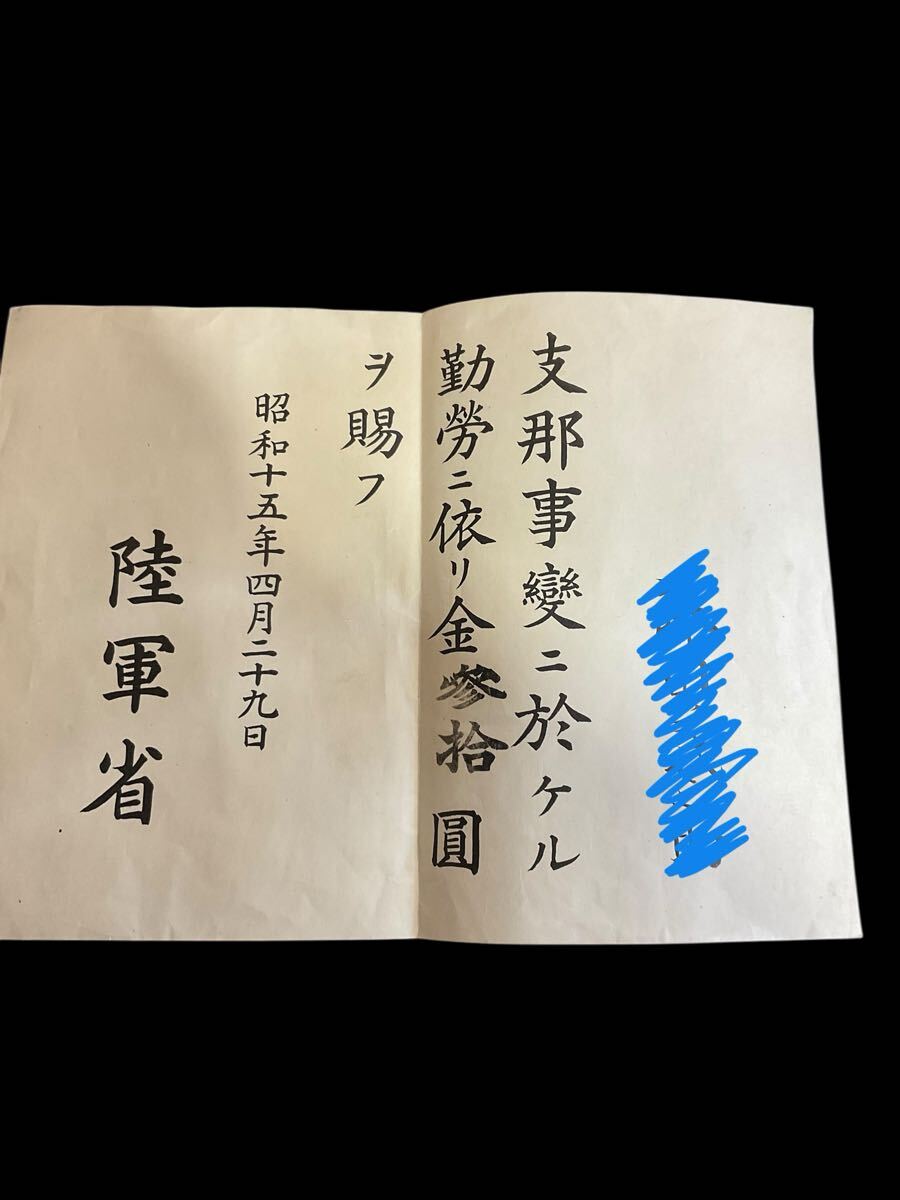 支那事變ニ於ケル
勤勞ニ依リ金參拾圓
ヲ賜フ
昭和十五年四月二十九日
陸軍省